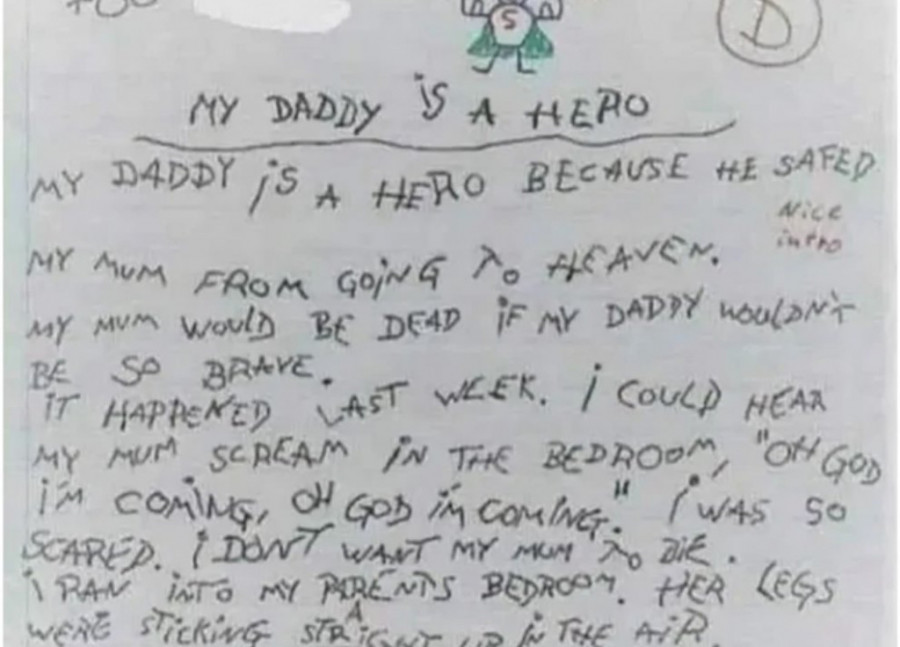 S
D
MY DADDY iS A HERO
MY DADDY iS A HERO BECAUSE HE SAFED
Nice
intro
MY MUM FROM GOiNG TO HEAVEN.
MY MUM WOULD BE DEAD iF MY DADDY WOULDN'T
BE SO BRAVE.
iT HAPPENED LAST WEEK. i COULD HEAR
MY MUM SCREAM iN THE BEDROOM, "OH GOD
i'M COMiNG, OH GOD i'M COMiNG." i WAS SO
SCARED. i DON'T WANT MY MUM TO DiE.
i RAN iNTO MY PARENTS BEDROOM. HER LEGS
WERE STiCKiNG STRAiGHT UP iN THE AiR.